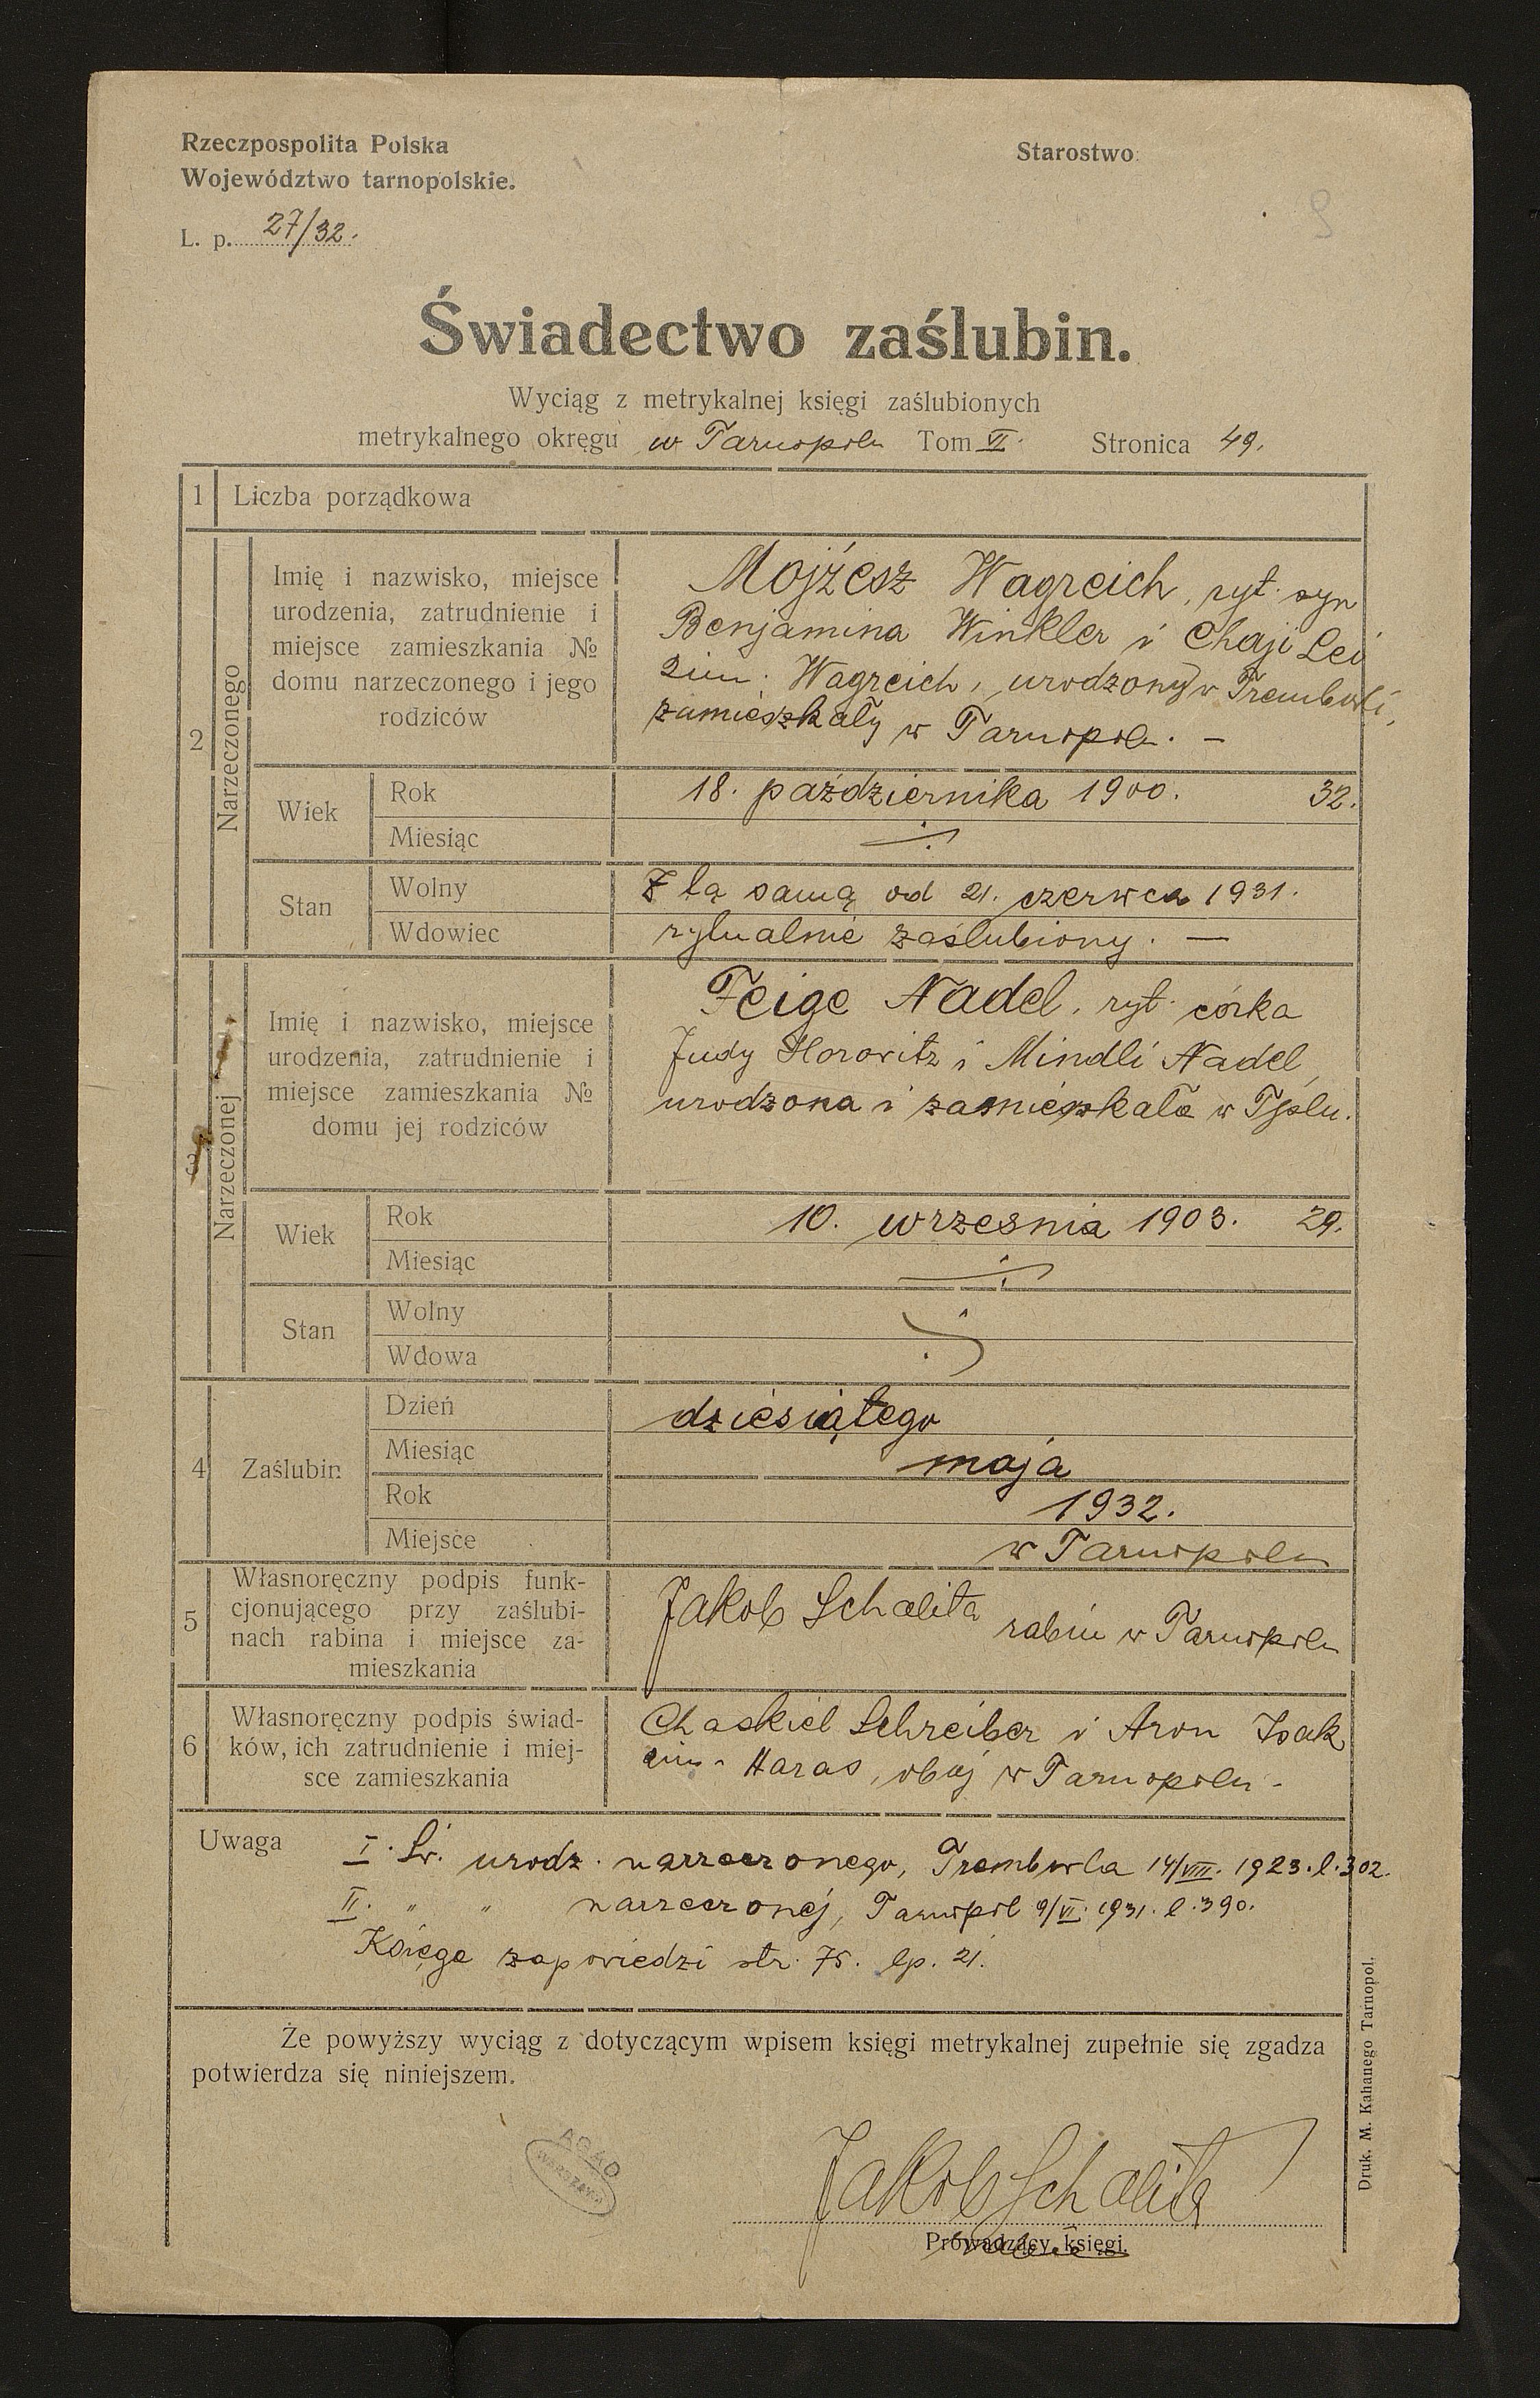 Rzeczpospolita Polska
Województwo tarnopolskie.
Starostwo
L. p. 27/32.
9
Świadectwo zaślubin.
Wyciąg z metrykalnej księgi zaślubionych
metrykalnego okręgu w Tarnopolu Tom VI. Stronica 49.
1 Liczba porządkowa
2 Narzeczonego
Imię i nazwisko, miejsce
urodzenia, zatrudnienie i
miejsce zamieszkania №
domu narzeczonego i jego
rodziców
Mojżesz Wagreich, ryt. syn
Benjamina Winkler i Chaji Lei
2im. Wagreich, urodzony w Trembowli,
zamieszkały w Tarnopolu. —
Wiek
Rok 18. października 1900. 32.
Miesiąc
Stan
Wolny Z tą samą od 21. czerwca 1931.
Wdowiec rytualnie zaślubiony. —
3 Narzeczonej
Imię i nazwisko, miejsce
urodzenia, zatrudnienie i
miejsce zamieszkania №
domu jej rodziców
Feige Nadel, ryt. córka
Judy Horowitz i Mindli Nadel,
urodzona i zamieszkała w Tplu.
Wiek
Rok 10. wrzesnia 1903. 29.
Miesiąc
Stan
Wolny
Wdowa
4 Zaślubin
Dzień dziesiątego
Miesiąc maja
Rok 1932.
Miejsce w Tarnopolu
5
Własnoręczny podpis funk-
cjonującego przy zaślubi-
nach rabina i miejsce za-
mieszkania
Jakob Schalita rabin w Tarnopolu
6
Własnoręczny podpis świad-
ków, ich zatrudnienie i miej-
sce zamieszkania
Chaskiel Schreiber i Aron Isak
Haras, obaj w Tarnopolu.
Uwaga
I. Św. urodz. narzeczonego, Trembowla 14/VIII. 1923. l. 302.
II. " " narzeczonej, Tarnopol 9/VI. 1931. l. 390.
Księga zapowiedzi str. 75. lp. 21.
Że powyższy wyciąg z dotyczącym wpisem księgi metrykalnej zupełnie się zgadza
potwierdza się niniejszem.
AGAD
WARSZAWA
Jakob Schalita
Prowadzący księgi.
Druk. M. Kahanego Tarnopol.